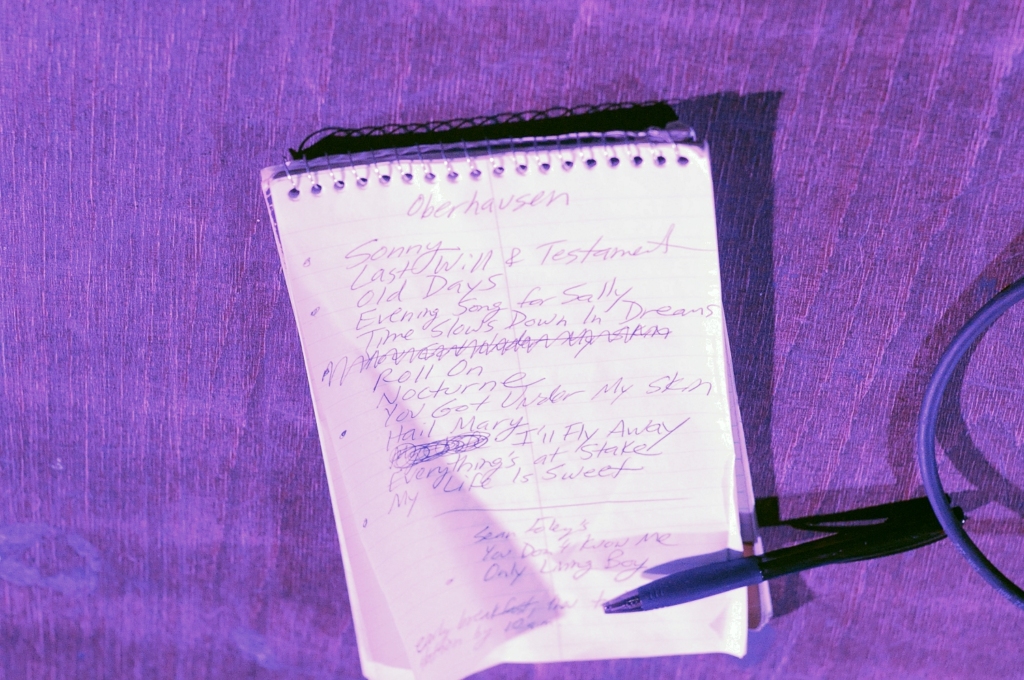 Oberhausen
Sonny
Last Will & Testament
Old Days
Evening Song for Sally
Time Slows Down In Dreams
Roll On
Nocturne
You Got Under My Skin
Hail Mary
I'll Fly Away
Everything's at Stake
My Life Is Sweet
Sean
You Don't Know Me
Only Living Boy
only breakfast